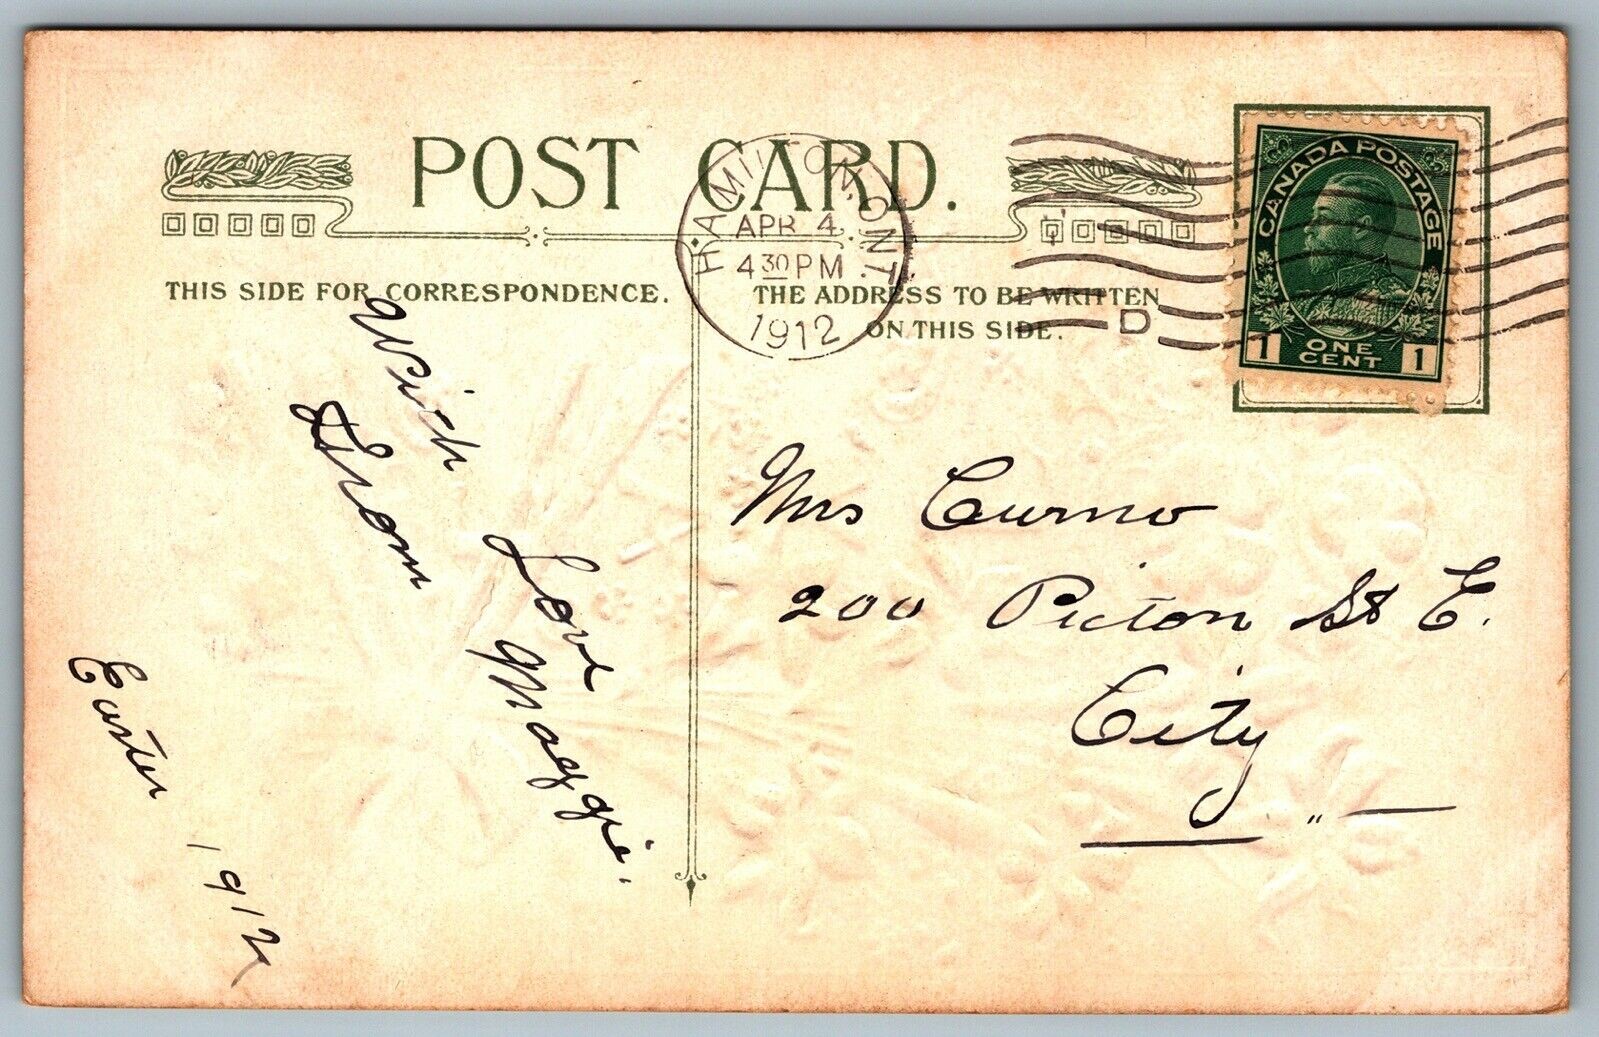 POST CARD.
THIS SIDE FOR CORRESPONDENCE.
THE ADDRESS TO BE WRITTEN
ON THIS SIDE.
HAMILTON. ONT.
APR 4
4 30 PM
1912
D
CANADA POSTAGE
1 ONE CENT 1
With Love
From Maggie.
Easter 1912
Mrs Curno
200 Picton St E.
City